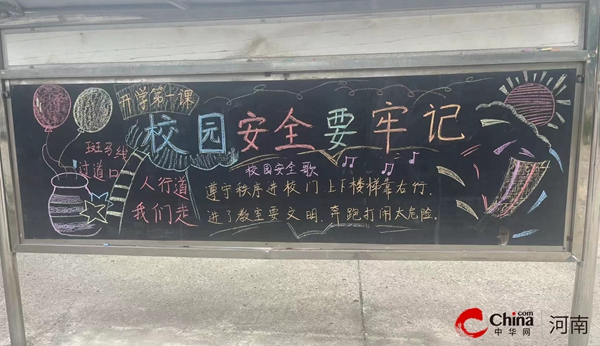 开学第一课
校园安全要牢记
斑马线
过道口
人行道
我们走
校园安全歌
遵守秩序进校门 上下楼梯靠右行.
进了教室要文明.奔跑打闹太危险.
China.com
中华网
河南